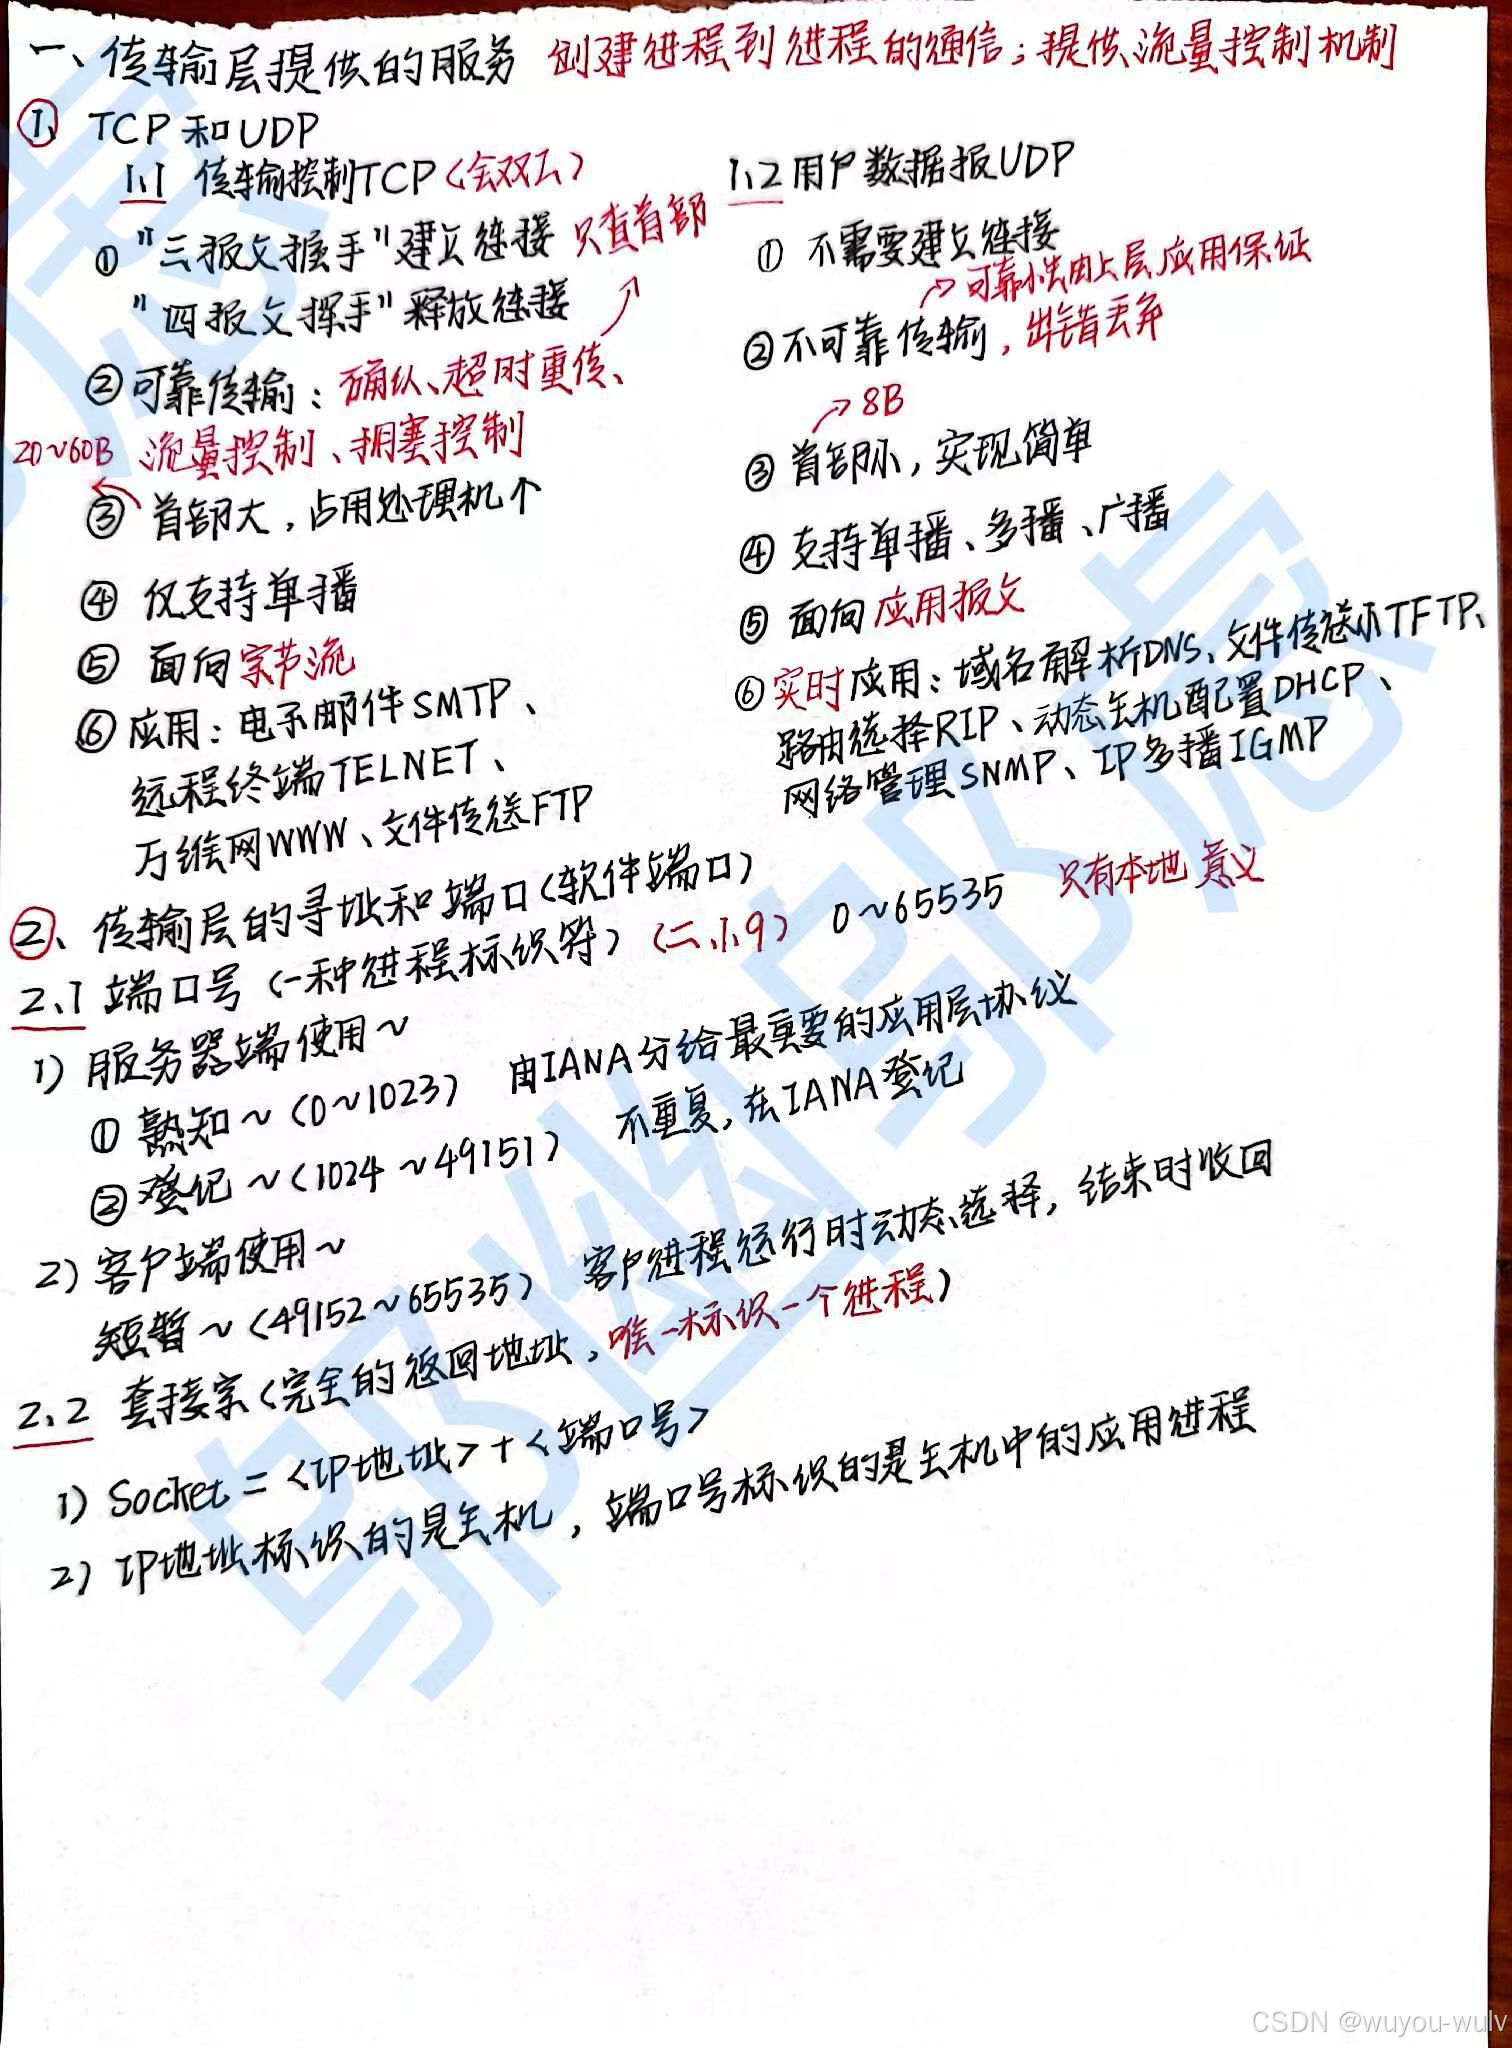 一、传输层提供的服务 创建进程到进程的通信；提供流量控制机制
①、TCP和UDP
1.1 传输控制TCP（全双工）
①"三报文握手"建立连接 只查首部
"四报文挥手"释放连接
②可靠传输：确认、超时重传、
流量控制、拥塞控制
20~60B
③ 首部大，占用处理机个
④ 仅支持单播
⑤ 面向字节流
⑥应用：电子邮件SMTP、
远程终端TELNET、
万维网WWW、文件传送FTP
1.2用户数据报UDP
① 不需要建立连接
可靠性由上层应用保证
②不可靠传输，出错丢弃
8B
③ 首部小，实现简单
④ 支持单播、多播、广播
⑤ 面向应用报文
⑥实时应用：域名解析DNS、文件传送小TFTP、
路由选择RIP、动态主机配置DHCP、
网络管理SNMP、IP多播IGMP
②、传输层的寻址和端口（软件端口）
2.1 端口号（一种进程标识符）（二、1、9） 0~65535 只有本地意义
1）服务器端使用~
①熟知~（0~1023） 由IANA分给最重要的应用层协议
②登记~（1024~49151） 不重复，在IANA登记
2）客户端使用~
短暂~（49152~65535） 客户进程运行时动态选择，结束时收回
2.2 套接字（完全的返回地址，唯一标识一个进程）
1）Socket=<IP地址>+<端口号>
2）IP地址标识的是主机，端口号标识的是主机中的应用进程
邬幽邬虑
虑
CSDN @wuyou-wulv